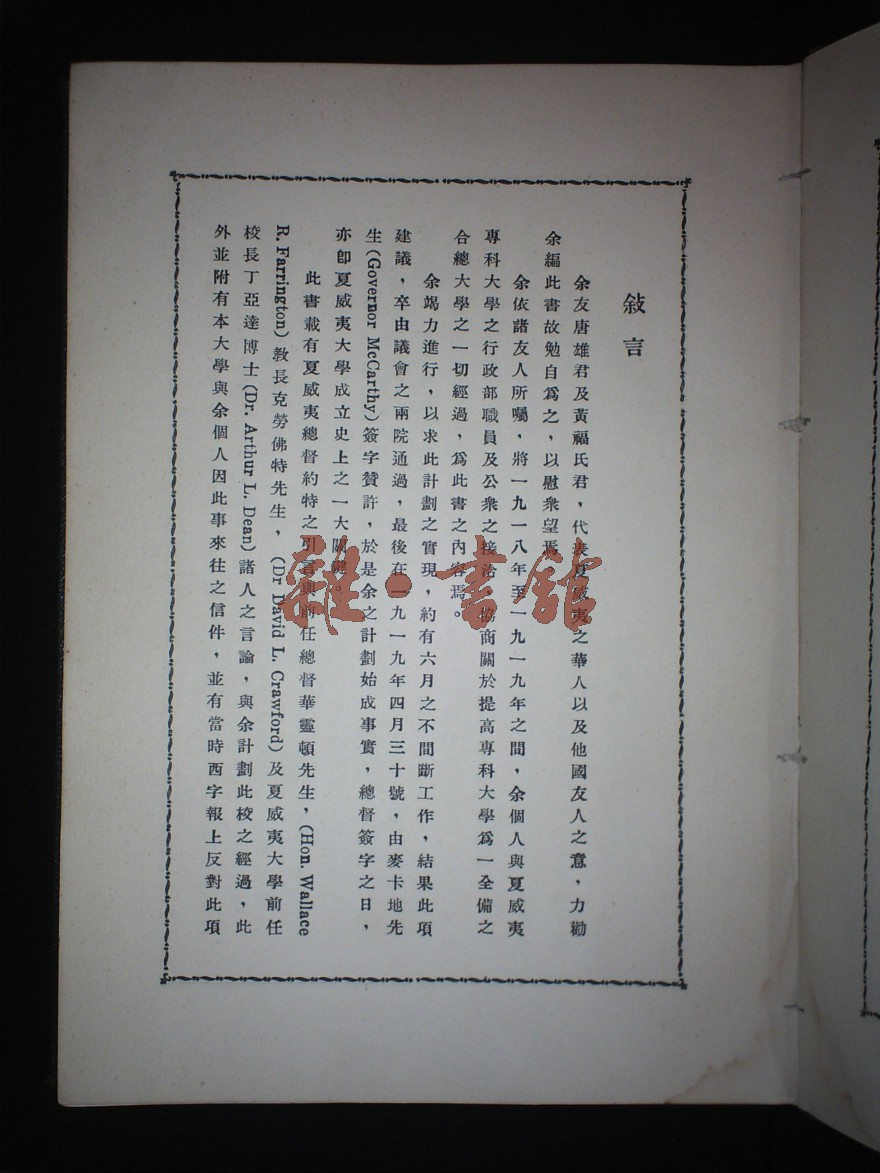 敍言
余友唐雄君及黃福氏君，代表夏威夷之華人以及他國友人之意，力勸
余編此書故勉自爲之，以慰衆望焉。
余依諸友人所囑，將一九一八年至一九一九年之間，余個人與夏威夷
專科大學之行政部職員及公衆之接洽，協商關於提高專科大學爲一全備之
合總大學之一切經過，爲此書之內容焉。
余竭力進行，以求此計劃之實現，約有六月之不間斷工作，結果此項
建議，卒由議會之兩院通過，最後在一九一九年四月三十號，由麥卡地先
生(Governor McCarthy)簽字贊許，於是余之計劃始成事實，總督簽字之日，
亦卽夏威夷大學成立史上之一大關鍵。
此書載有夏威夷總督約特之引言與前任總督華靈頓先生，(Hon. Wallace
R. Farrington)教長克勞佛特先生，(Dr David L. Crawford)及夏威夷大學前任
校長丁亞達博士(Dr. Arthur L. Dean)諸人之言論，與余計劃此校之經過，此
外並附有本大學與余個人因此事來往之信件，並有當時西字報上反對此項
雜·書館